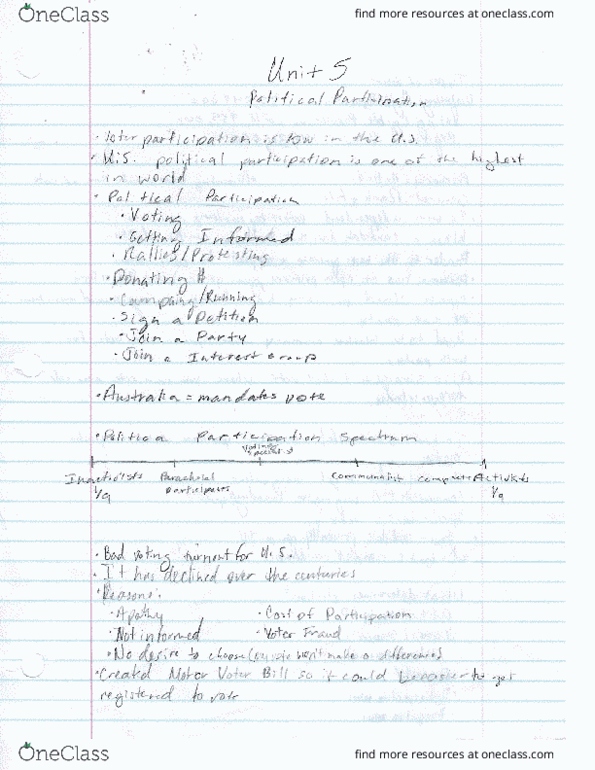 OneClass
find more resources at oneclass.com
Unit 5
Political Participation
• Voter participation is low in the U.S.
• U.S. political participation is one of the highest
in world
• Political Participation
• Voting
• Getting Informed
• Rallies/Protesting
• Donating #
• /Running
• Sign a Petition
• Join a Party
• Join a Interest Group
• Australia = mandates vote
• Politica Participation Spectrum
Voting
Specialist
Inactivists Parochial Communalist complete Activists
1/9 participates 1/9
• Bad voting turnout for U.S.
• It has declined over the centuries
• Reasons:
• Apathy • Cost of Participation
• Not informed • Voter Fraud
• No desire to choose ( won't make a difference)
• Created Motor Voter Bill so it could be easier to get
registered to vote
OneClass
find more resources at oneclass.com